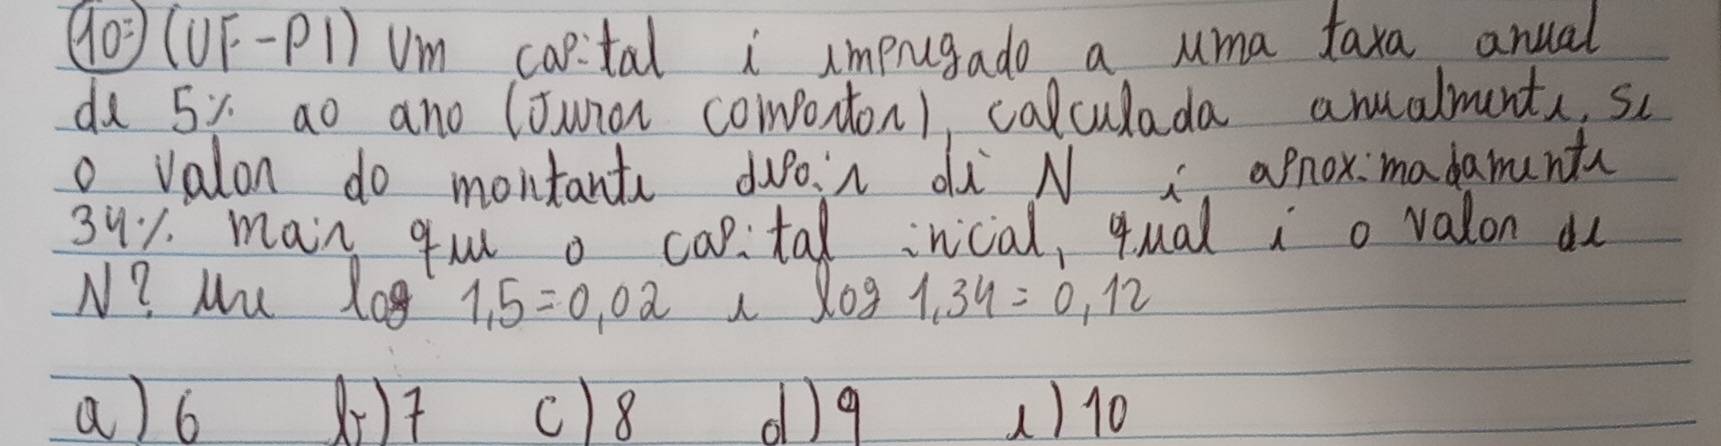 10=) (UF-PI) Um capital é empregado a uma taxa anual
de 5% ao ano (Juros compostos), calculada anualmente, se
o valor do montante depois de N é aproximadamente
34% mais que o capital incial, qual é o valor de
N? Use log 1,5=0,02 e log 1,34=0,12
a) 6 b) 7 c) 8 d) 9 e) 10